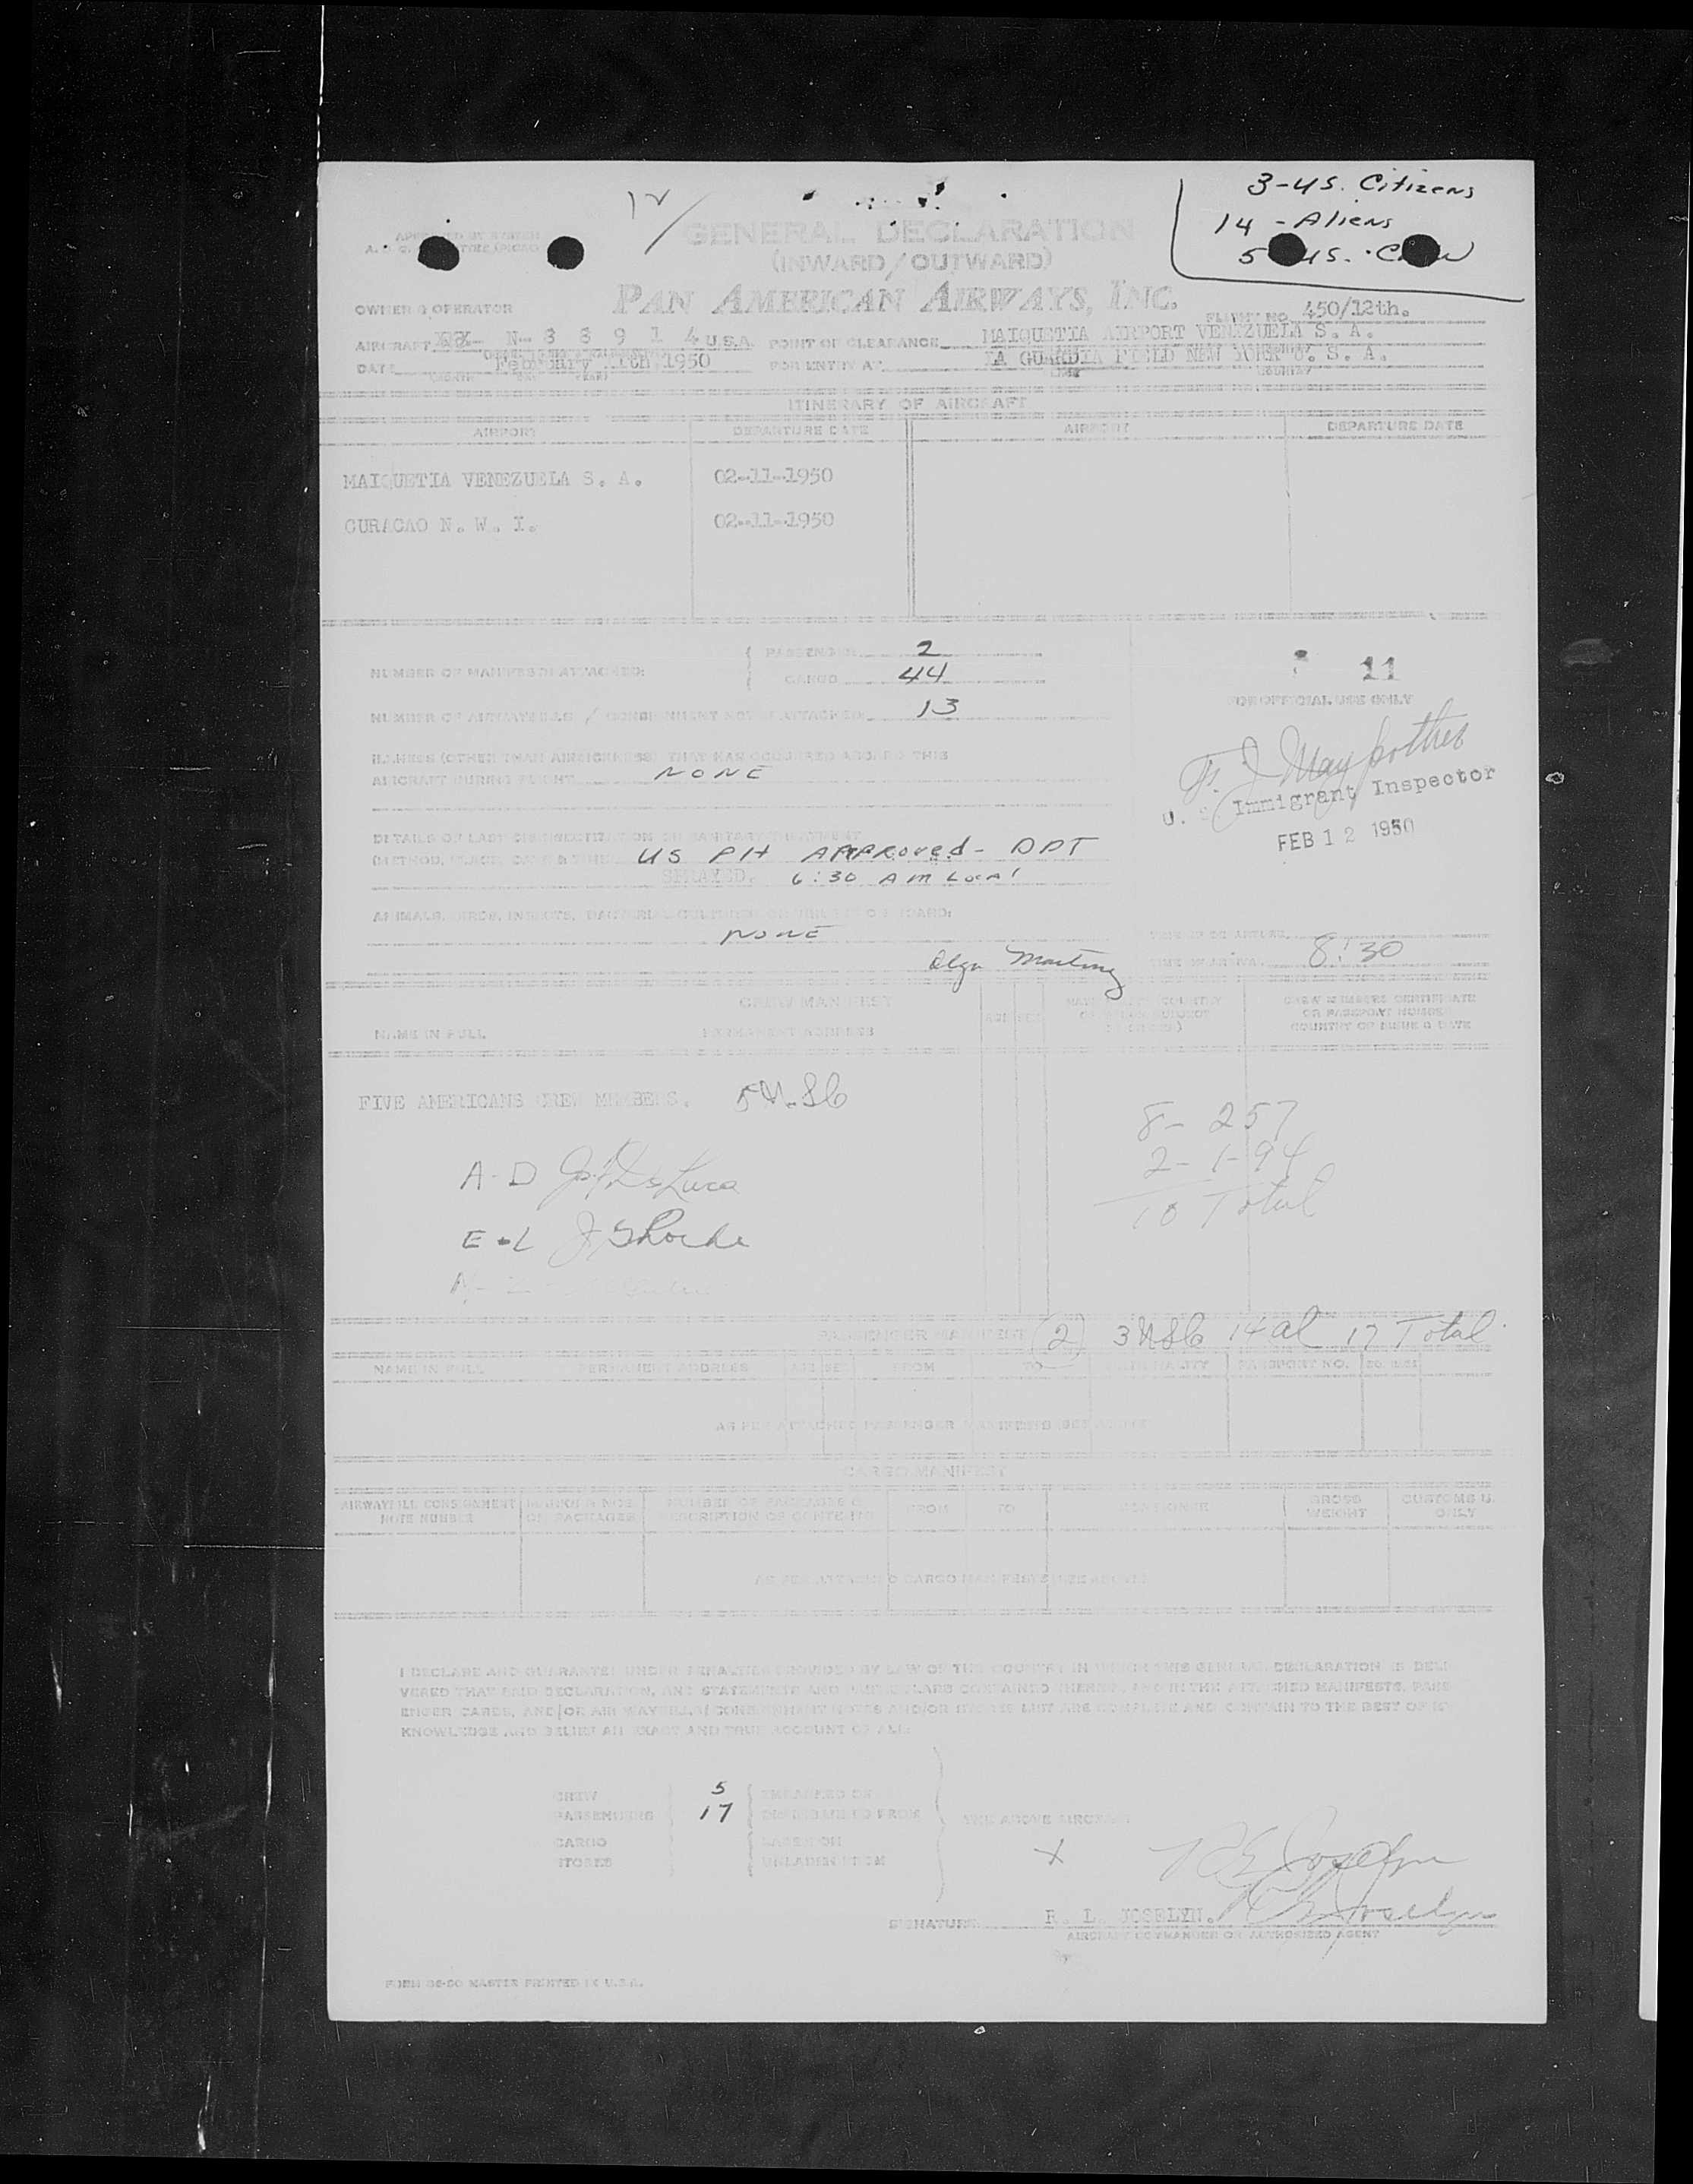 3-US. Citizens
14 - Aliens
12
GENERAL DECLARATION
(INWARD/OUTWARD)
PAN AMERICAN AIRWAYS, INC.
OWNER & OPERATOR
FLIGHT NO. 450/12th.
AIRCRAFT N- 8 8 9 1 4 U.S.A. POINT OF CLEARANCE MAIQUETIA AIRPORT VENEZUELA S. A.
DATE February 1950 FOR ENTRY AT LA GUARDIA FIELD NEW YORK U. S. A.
ITINERARY OF AIRCRAFT
AIRPORT DEPARTURE DATE AIRPORT DEPARTURE DATE
MAIQUETIA VENEZUELA S. A. 02-11-1950
CURACAO N. W. I. 02-11-1950
NUMBER OF MANIFESTS ATTACHED: PASSENGER 2
CARGO 44
13
11
FOR OFFICIAL USE ONLY
ILLNESS (OTHER THAN AIRSICKNESS) THAT HAS OCCURRED ABOARD THIS
AIRCRAFT DURING FLIGHT NONE
U. S. Immigrant Inspector
FEB 12 1950
DETAILS OF LAST DISINSECTIZATION OR SANITARY TREATMENT
(METHOD, PLACE, DATE & TIME) US PH APPROVED - DDT
SPRAYED. 6:30 AM Local
ANIMALS, BIRDS, INSECTS, BACTERIAL CULTURES OR VIRUS ON BOARD:
NONE
TIME OF ARRIVAL 8:30
CREW MANIFEST
NAME IN FULL PERMANENT ADDRESS AGE SEX CREW MEMBERS CERTIFICATE
OR PASSPORT NUMBER
COUNTRY OF ISSUE & DATE
FIVE AMERICANS CREW MEMBERS. 5 USC
8- 257
2- 1-94
10 Total
A-D
E-L
PASSENGER MANIFEST (2) 3 USC 14 al 17 Total
NAME IN FULL PERMANENT ADDRESS AGE SEX FROM TO NATIONALITY PASSPORT NO.
AS PER ATTACHED PASSENGER MANIFESTS (SEE ABOVE)
CARGO MANIFEST
AIRWAYBILL CONSIGNMENT NOTE NUMBER MARKS & NOS ON PACKAGES NUMBER OF PACKAGES & DESCRIPTION OF CONTENTS FROM TO CONSIGNEE GROSS WEIGHT CUSTOMS U. ONLY
AS PER ATTACHED CARGO MANIFESTS (SEE ABOVE)
I DECLARE AND GUARANTEE UNDER PENALTIES PROVIDED BY LAW OF THE COUNTRY IN WHICH THIS GENERAL DECLARATION IS DELI
VERED THAT SAID DECLARATION, AND STATEMENTS AND PARTICULARS CONTAINED THEREIN, AND IN THE ATTACHED MANIFESTS, PASS
ENGER CARDS, AND/OR AIR WAYBILLS/ CONSIGNMENT NOTES AND/OR STORES LIST ARE COMPLETE AND CONTAIN TO THE BEST OF MY
KNOWLEDGE AND BELIEF AN EXACT AND TRUE ACCOUNT OF ALL:
CREW 5 EMBARKED ON
PASSENGERS 17 DISEMBARKED FROM THE ABOVE AIRCRAFT.
CARGO LADEN ON
STORES UNLADEN FROM
X
SIGNATURE R. L. JOSELYN.
AIRCRAFT COMMANDER OR AUTHORIZED AGENT
MASTER PRINTED IN U.S.A.